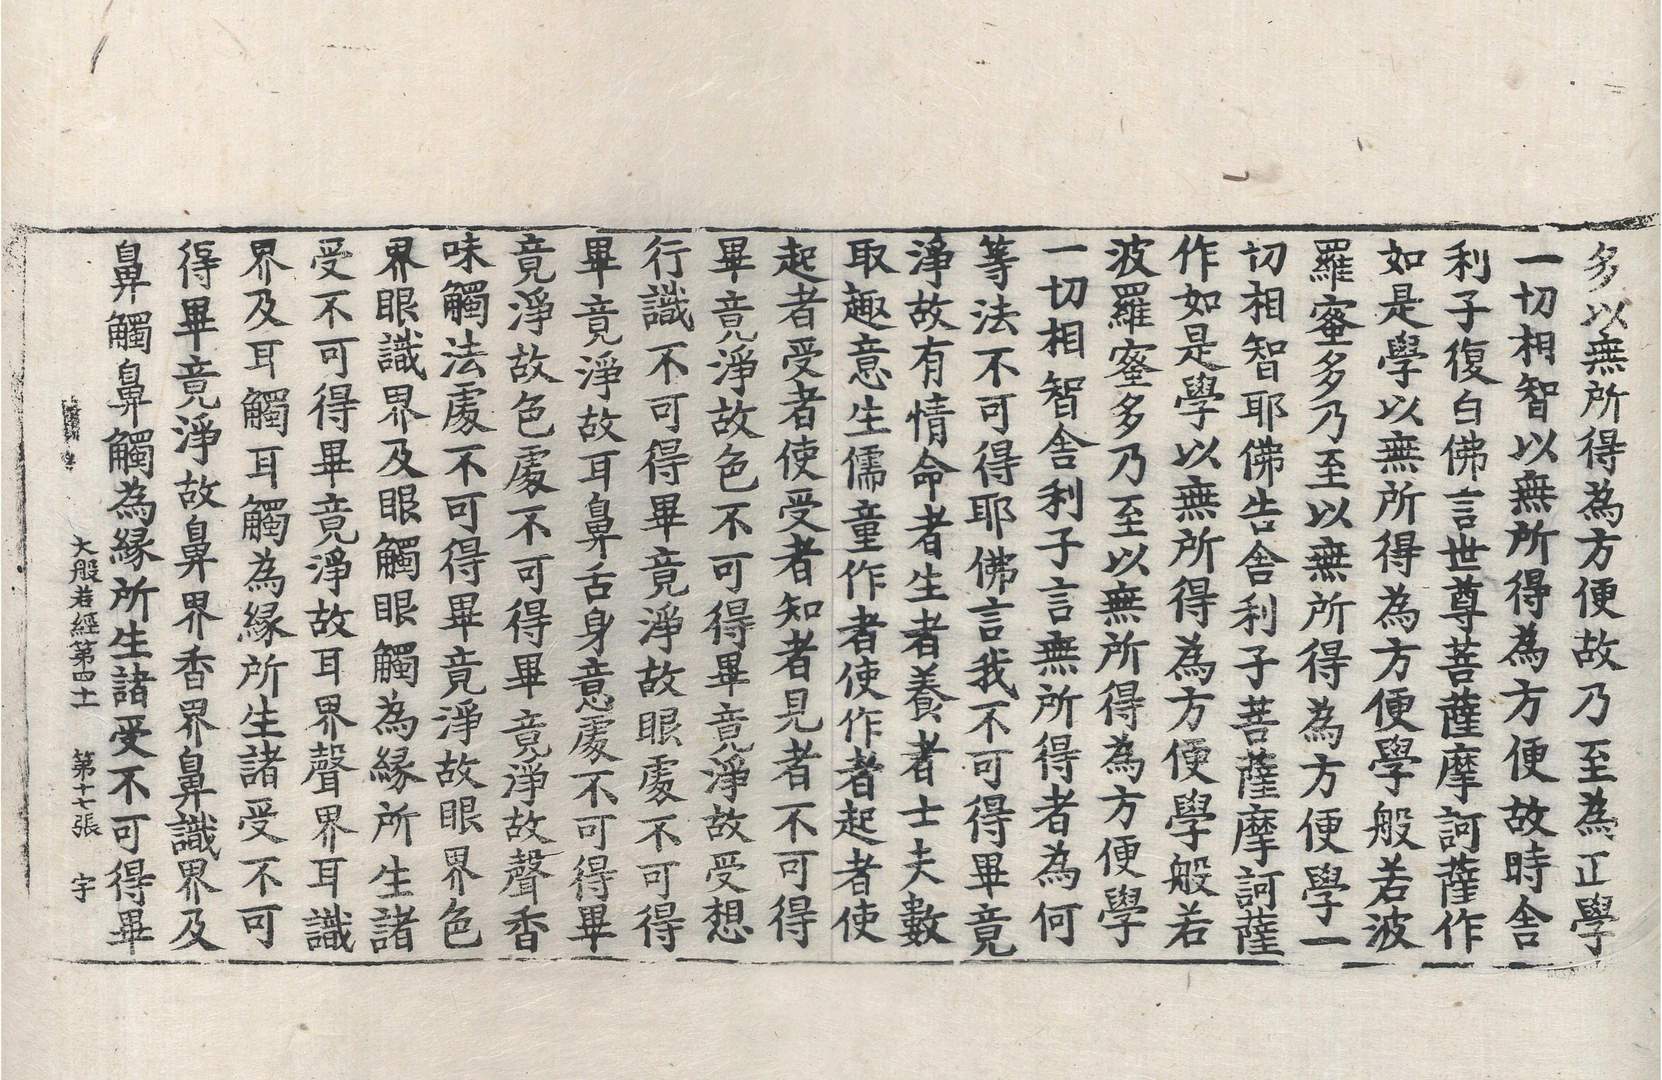 多以無所得為方便故乃至為正學
一切相智以無所得為方便故時舍
利子復白佛言世尊菩薩摩訶薩作
如是學以無所得為方便學般若波
羅蜜多乃至以無所得為方便學一
切相智耶佛告舍利子菩薩摩訶薩
作如是學以無所得為方便學般若
波羅蜜多乃至以無所得為方便學
一切相智舍利子言無所得者為何
等法不可得耶佛言我不可得畢竟
淨故有情命者生者養者士夫數
取趣意生儒童作者使作者起者使
起者受者使受者知者見者不可得
畢竟淨故色不可得畢竟淨故受想
行識不可得畢竟淨故眼處不可得
畢竟淨故耳鼻舌身意處不可得畢
竟淨故色處不可得畢竟淨故聲香
味觸法處不可得畢竟淨故眼界色
界眼識界及眼觸眼觸為緣所生諸
受不可得畢竟淨故耳界聲界耳識
界及耳觸耳觸為緣所生諸受不可
得畢竟淨故鼻界香界鼻識界及
鼻觸鼻觸為緣所生諸受不可得畢
大般若經第四十一 第十七張 宇